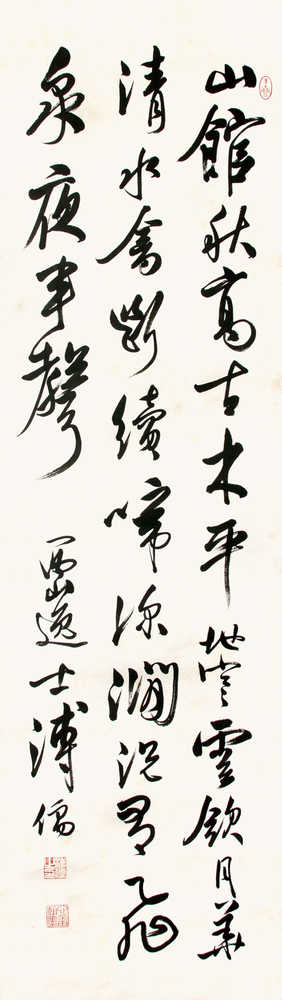 山館秋高古木平地空雲歛月華
清水禽斷續啼深澗況有飛
泉夜半聲
西山逸士溥儒